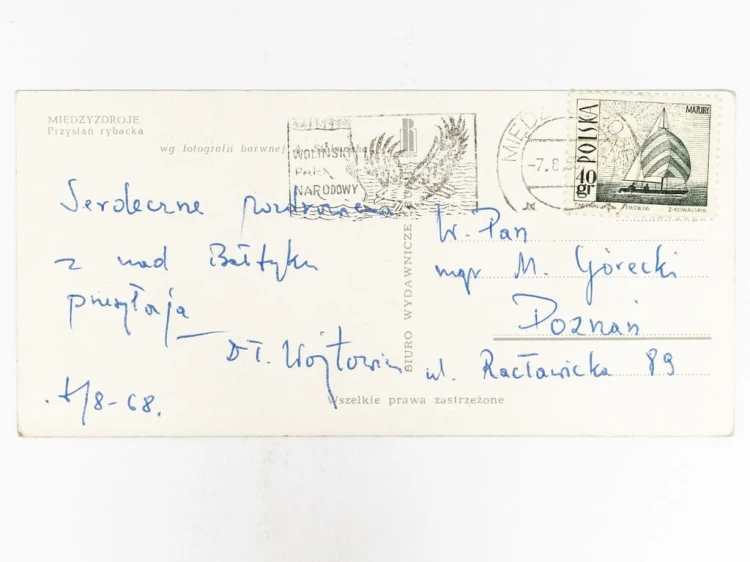 MIĘDZYZDROJE
Przystań rybacka
wg fotografii barwnej
WOLIŃSKI
PARK
NARODOWY
MIĘDZ
-7.8.
MAZURY
POLSKA
40 gr
Serdeczne pozdrowienia
z nad Bałtyku
przesyłają
D.T. Wójtowicz
7/8-68.
BIURO WYDAWNICZE
R
W. Pan
mgr M. Górecki
Poznań
ul. Racławicka 89
Wszelkie prawa zastrzeżone